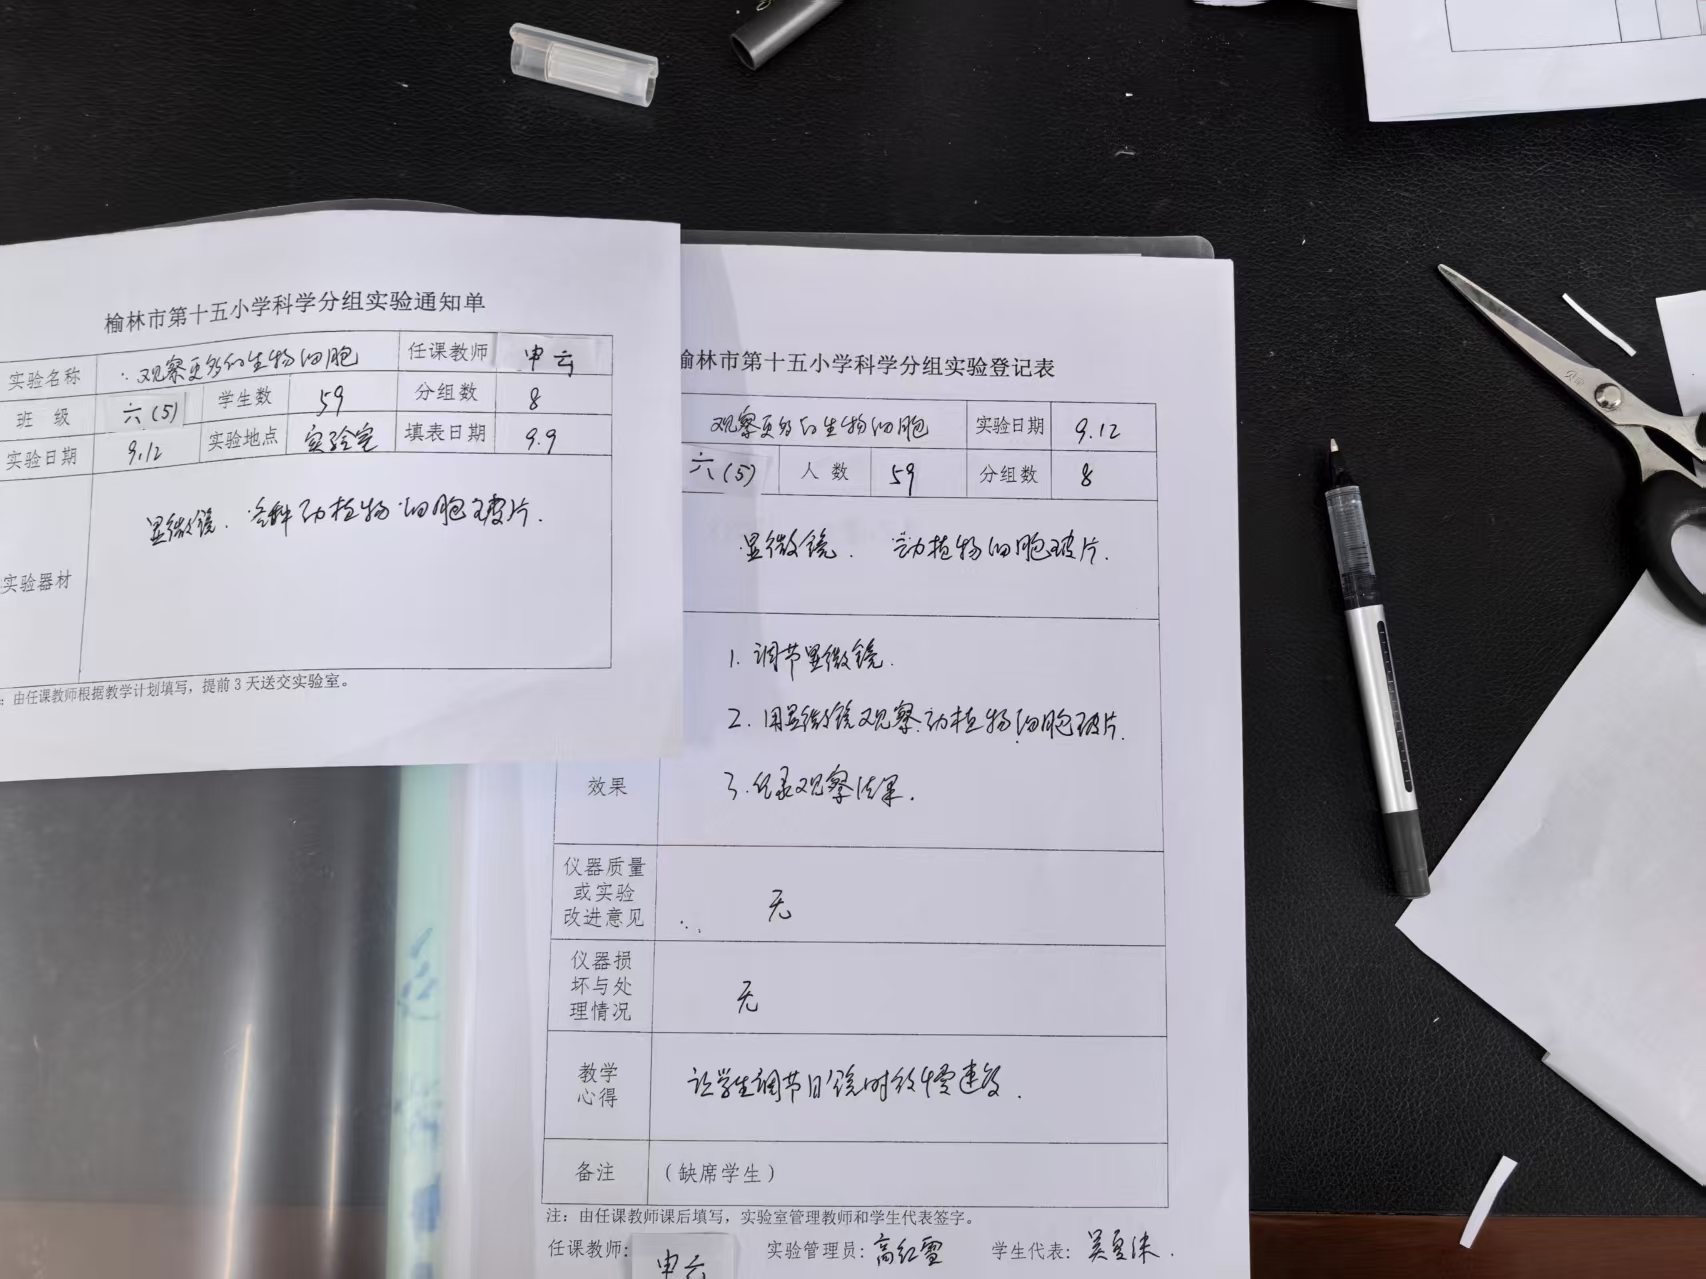 榆林市第十五小学科学分组实验通知单
实验名称 观察更多的生物细胞 任课教师 申云
班 级 六(5) 学生数 59 分组数 8
实验日期 9.12 实验地点 实验室 填表日期 9.9
实验器材 显微镜. 各种动植物细胞玻片.
：由任课教师根据教学计划填写，提前3天送交实验室。
榆林市第十五小学科学分组实验登记表
观察更多的生物细胞 实验日期 9.12
六(5) 人 数 59 分组数 8
显微镜. 动植物细胞玻片.
1. 调节显微镜.
2. 用显微镜观察动植物细胞玻片.
效果 3. 记录观察结果.
仪器质量或实验改进意见 无
仪器损坏与处理情况 无
教学心得 让学生调节目镜时放慢速度.
备注 （缺席学生）
注：由任课教师课后填写，实验室管理教师和学生代表签字。
任课教师: 申云 实验管理员: 高红雪 学生代表: 吴夏沫.